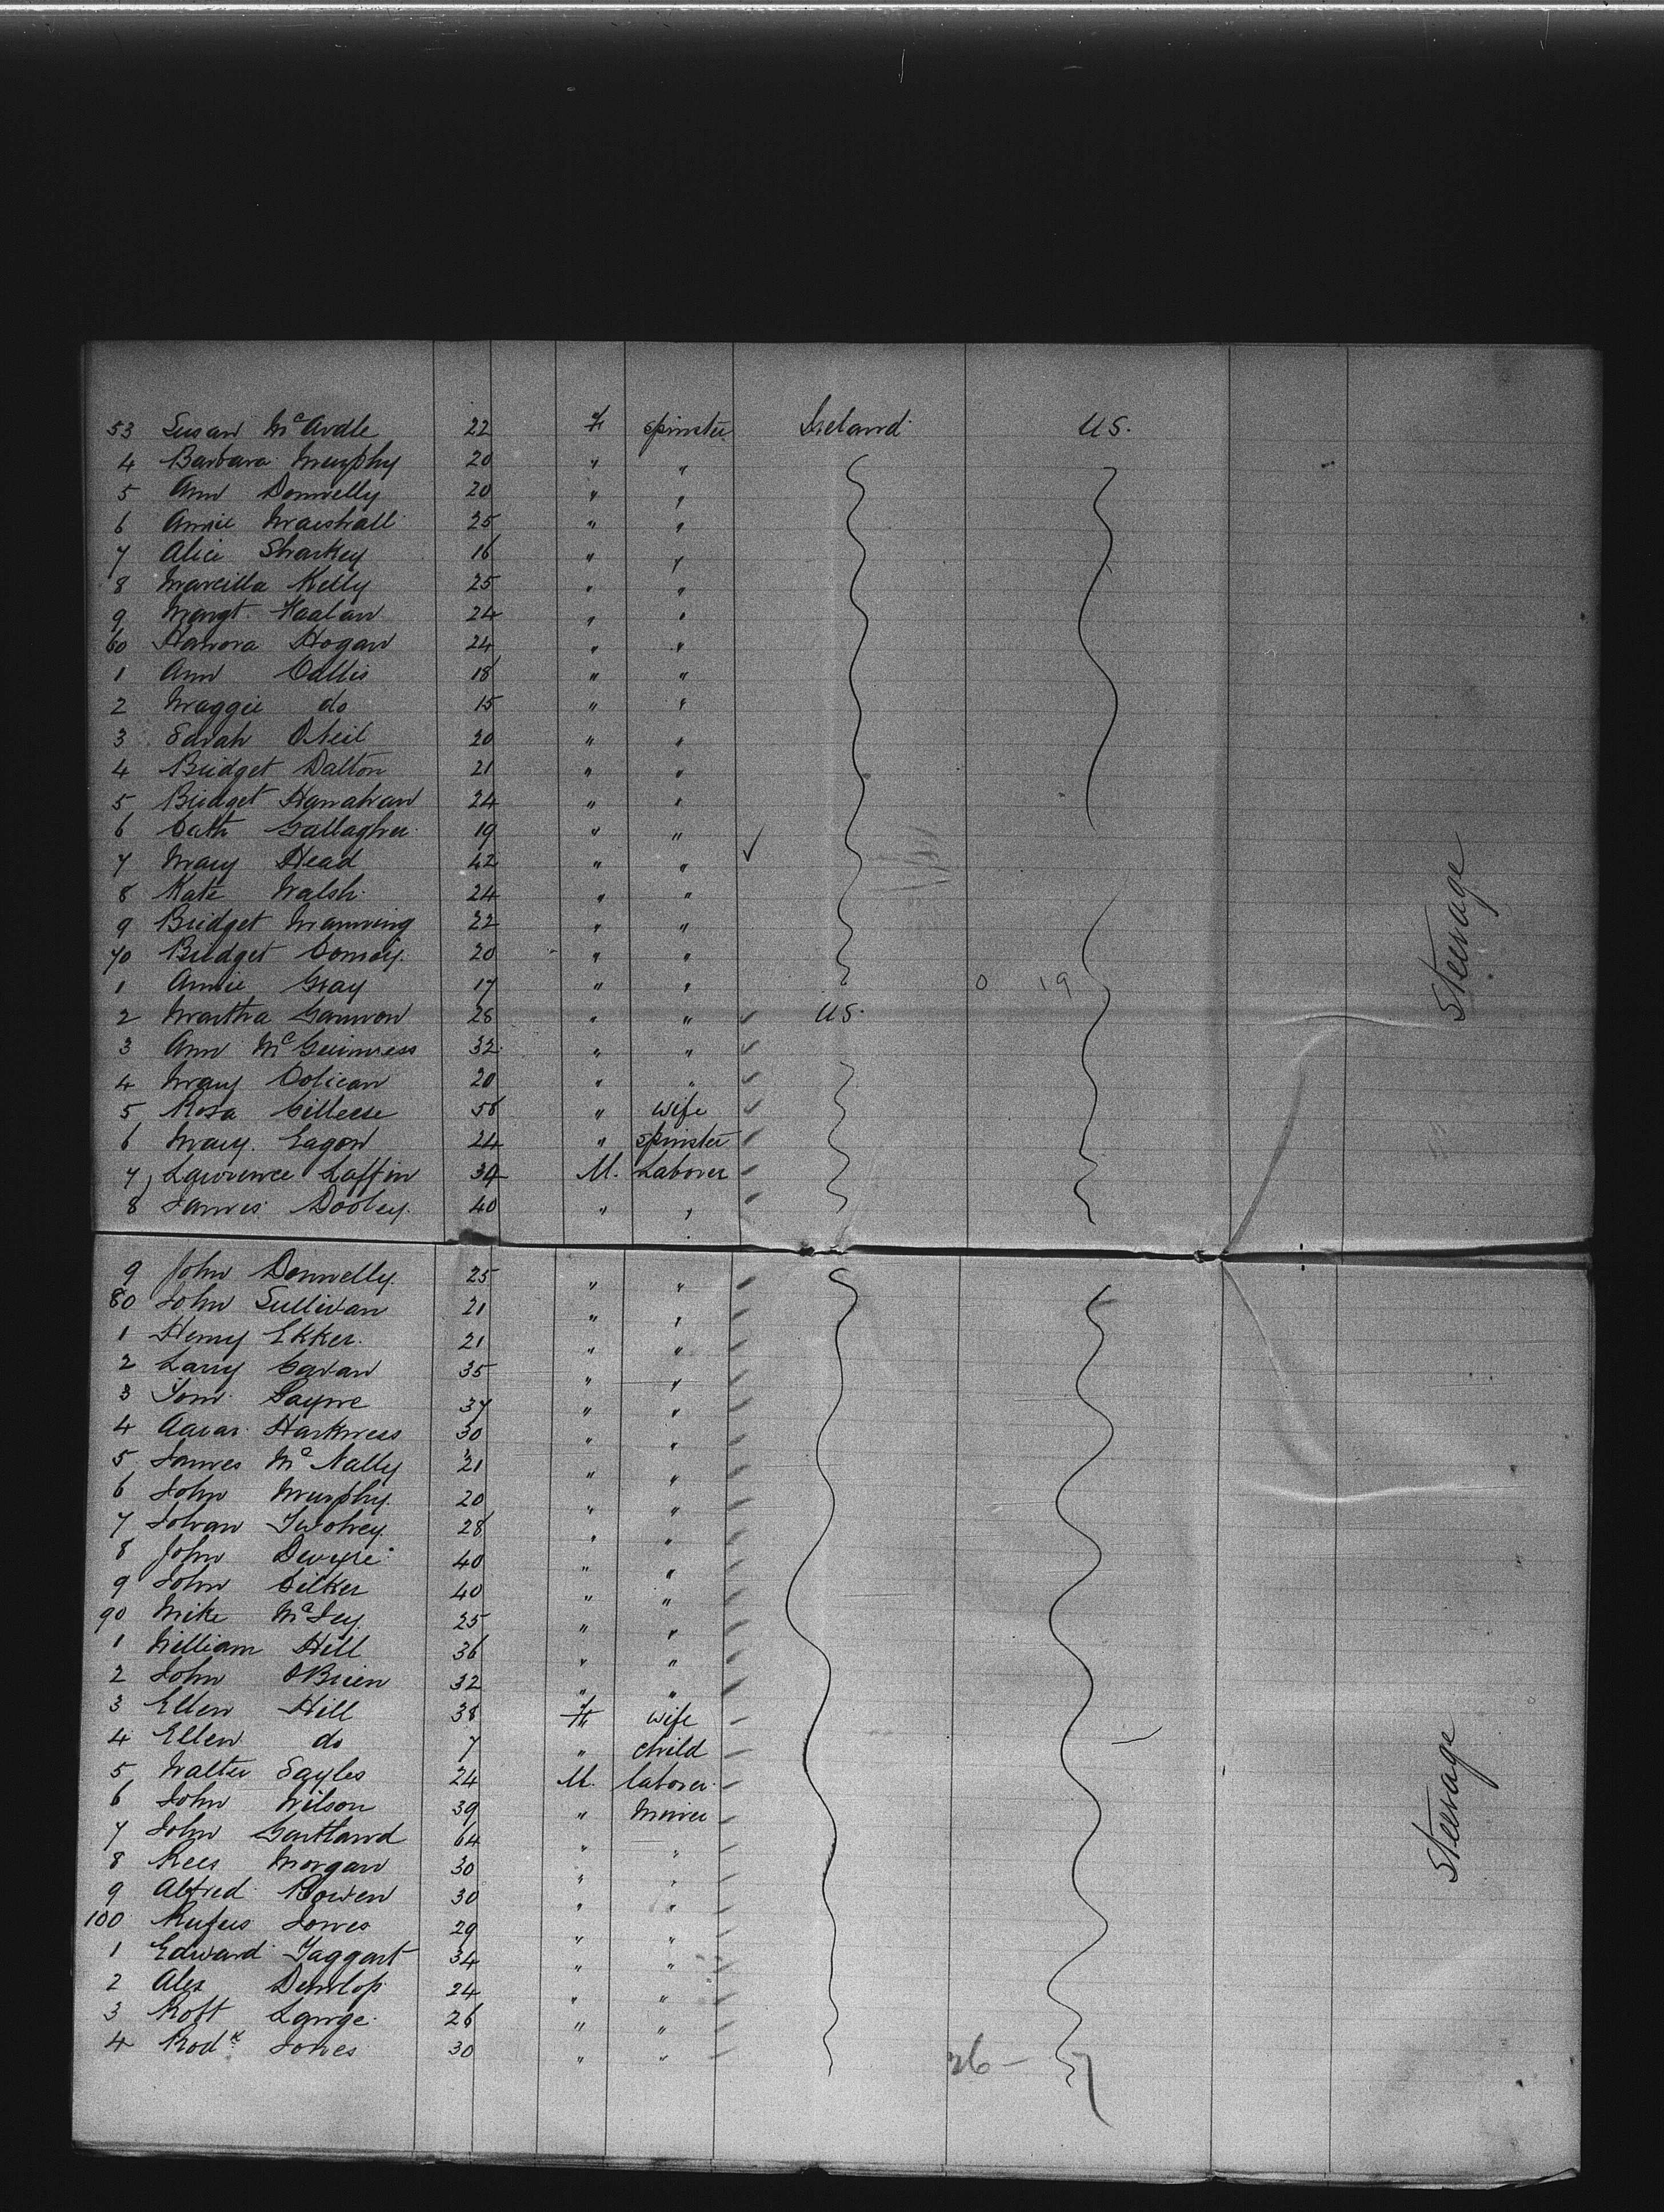 53 Susan McArdle 22 F spinster Ireland U.S.
4 Barbara Murphy 20 " "
5 Ann Donnelly 20 " "
6 Annie Marshall 25 " "
7 Alice Sharkey 16 " "
8 Marcilla Kelly 25 " "
9 Margt. 24 " "
60 Hanora Hogan 24 " "
1 Ann Callis 18 " "
2 Maggie do 15 " "
3 Sarah ONeil 20 " "
4 Bridget Dalton 21 " "
5 Bridget Hanahan 24 " "
6 Cath Gallagher 19 " "
7 Mary Head 42 " " ✓
8 Kate Walsh 24 " "
9 Bridget Manning 22 " "
70 Bridget 20 " "
1 Annie Gray 17 " " 0 19
2 Martha Gannon 26 " " U.S.
3 Ann McGuinness 32 " "
4 Mary Colican 20 " "
5 Rosa 56 " wife
6 Mary Eagon 24 " spinster
7 Lawrence Laffin 34 M. Laborer
8 James Dooley 40 " "
Steerage
9 John Donnelly 25 " "
80 John Sullivan 21 " "
1 Henry Ekker 21 " "
2 Larry Cavan 35 " "
3 Tom Payne 37 " "
4 Harkness 30 " "
5 James McNally 21 " "
6 John Murphy 20 " "
7 Twohey 28 " "
8 John Dwyre 40 " "
9 John Cilker 40 " "
90 Mike 25 " "
1 William Hill 36 " "
2 John OBrien 32 " "
3 Ellen Hill 38 F wife
4 Ellen do 7 " child
5 Walter Sayles 24 M. laborer
6 John Wilson 39 " Miner
7 John Gartland 64 " "
8 Rees Morgan 30 " "
9 Alfred Bowen 30 " "
100 Rufus Jones 29 " "
1 Edward Taggart 34 " "
2 Alex Dunlop 24 " "
3 Robt Large 26 " "
4 Rodk Jones 30 " " 26 - 7
Steerage